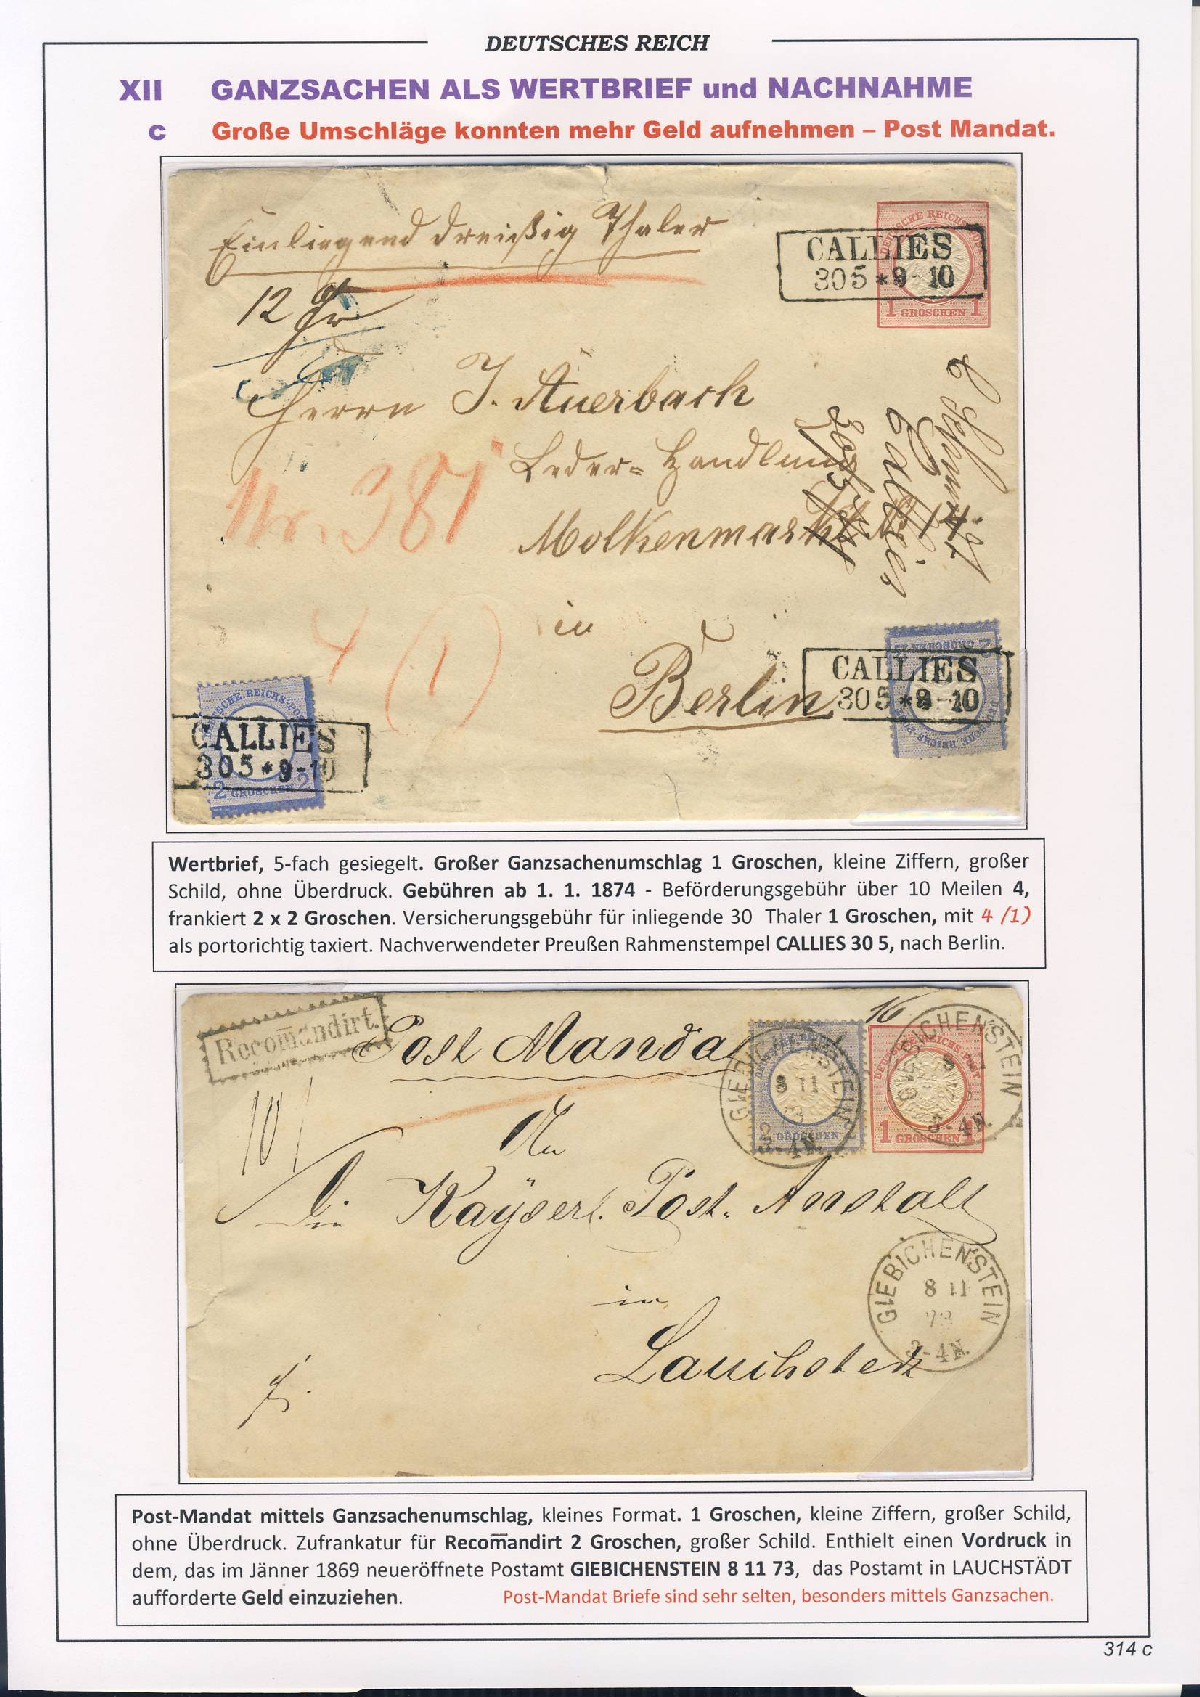 DEUTSCHES REICH
XII GANZSACHEN ALS WERTBRIEF und NACHNAHME
c Große Umschläge konnten mehr Geld aufnehmen – Post Mandat.
Einliegend dreißig Thaler
DEUTSCHE REICHS-POST
1 GROSCHEN 1
CALLIES
30 5 * 9-10
12 Gr
Herrn J. Auerbach
Leder-Handlung
Molkenmarkt № 14.
in
Berlin
Nr. 381
4 (1)
Callies
CALLIES
30 5 * 9-10
CALLIES
30 5 * 9-10
2 GROSCHEN 2
Wertbrief, 5-fach gesiegelt. Großer Ganzsachenumschlag 1 Groschen, kleine Ziffern, großer
Schild, ohne Überdruck. Gebühren ab 1. 1. 1874 - Beförderungsgebühr über 10 Meilen 4,
frankiert 2 x 2 Groschen. Versicherungsgebühr für inliegende 30 Thaler 1 Groschen, mit 4 /1)
als portorichtig taxiert. Nachverwendeter Preußen Rahmenstempel CALLIES 30 5, nach Berlin.
Recom̅andirt.
Post Manda
16
GIEBICHENSTEIN
8 11
3-4N.
2 GROSCHEN
1 GROSCHEN
GIEBICHENSTEIN
3-4N.
101
An
Die Kayserl. Post-Anstalt
in
Lauchstedt
GIEBICHENSTEIN
8 11
73
3-4N.
Post-Mandat mittels Ganzsachenumschlag, kleines Format. 1 Groschen, kleine Ziffern, großer Schild,
ohne Überdruck. Zufrankatur für Recom̅andirt 2 Groschen, großer Schild. Enthielt einen Vordruck in
dem, das im Jänner 1869 neueröffnete Postamt GIEBICHENSTEIN 8 11 73, das Postamt in LAUCHSTÄDT
aufforderte Geld einzuziehen. Post-Mandat Briefe sind sehr selten, besonders mittels Ganzsachen.
314 c